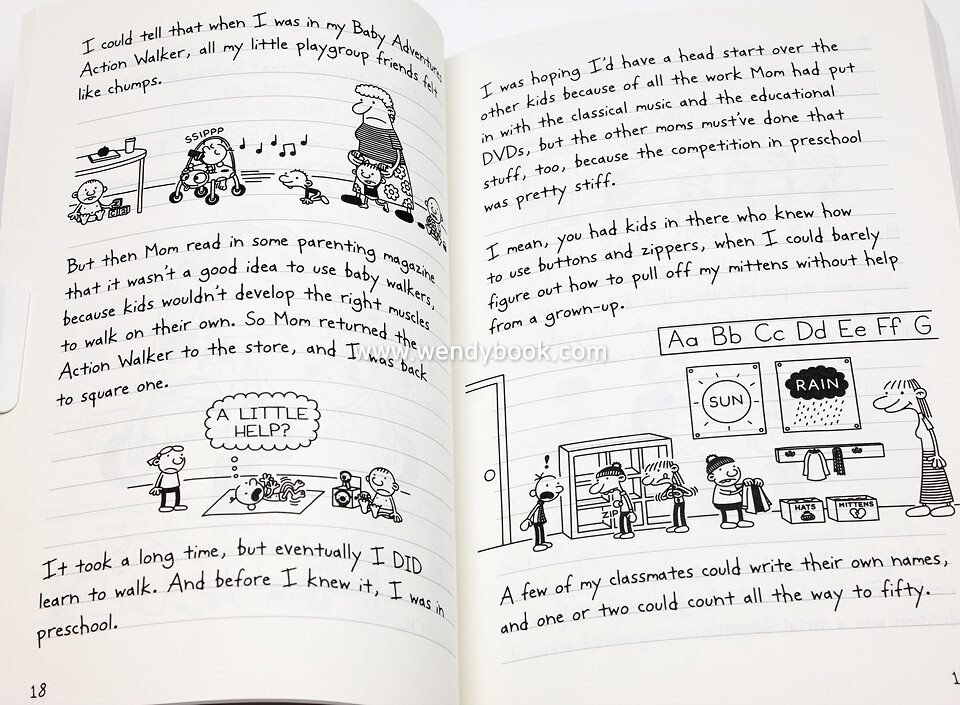 I could tell that when I was in my Baby Adventures
Action Walker, all my little playgroup friends felt
like chumps.
SSIPPP
But then Mom read in some parenting magazine
that it wasn't a good idea to use baby walkers,
because kids wouldn't develop the right muscles
to walk on their own. So Mom returned the
Action Walker to the store, and I was back
to square one.
A LITTLE
HELP?
It took a long time, but eventually I DID
learn to walk. And before I knew it, I was in
preschool.
18
I was hoping I'd have a head start over the
other kids because of all the work Mom had put
in with the classical music and the educational
DVDs, but the other moms must've done that
stuff, too, because the competition in preschool
was pretty stiff.
I mean, you had kids in there who knew how
to use buttons and zippers, when I could barely
figure out how to pull off my mittens without help
from a grown-up.
Aa Bb Cc Dd Ee Ff G
SUN
RAIN
!
ZIP
HATS
MITTENS
A few of my classmates could write their own names,
and one or two could count all the way to fifty.
1
www.wendybook.com